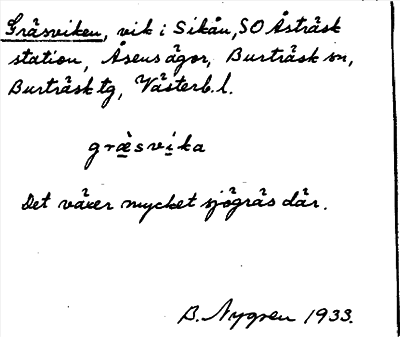 Gräsviken, vik i Sikån, SO Åsträsk
station, Åsens ägor, Burträsk sn,
Burträsk tg, Västerb. l.
græsvika
Det växer mycket sjögräs där.
B. Nygren 1933.